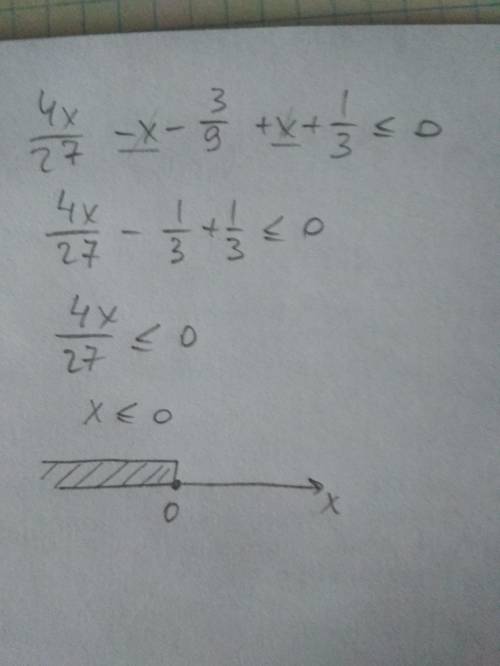 4x/27 - x - 3/9 + x + 1/3 ≤ 0
4x/27 - 1/3 + 1/3 ≤ 0
4x/27 ≤ 0
x ≤ 0
0 x